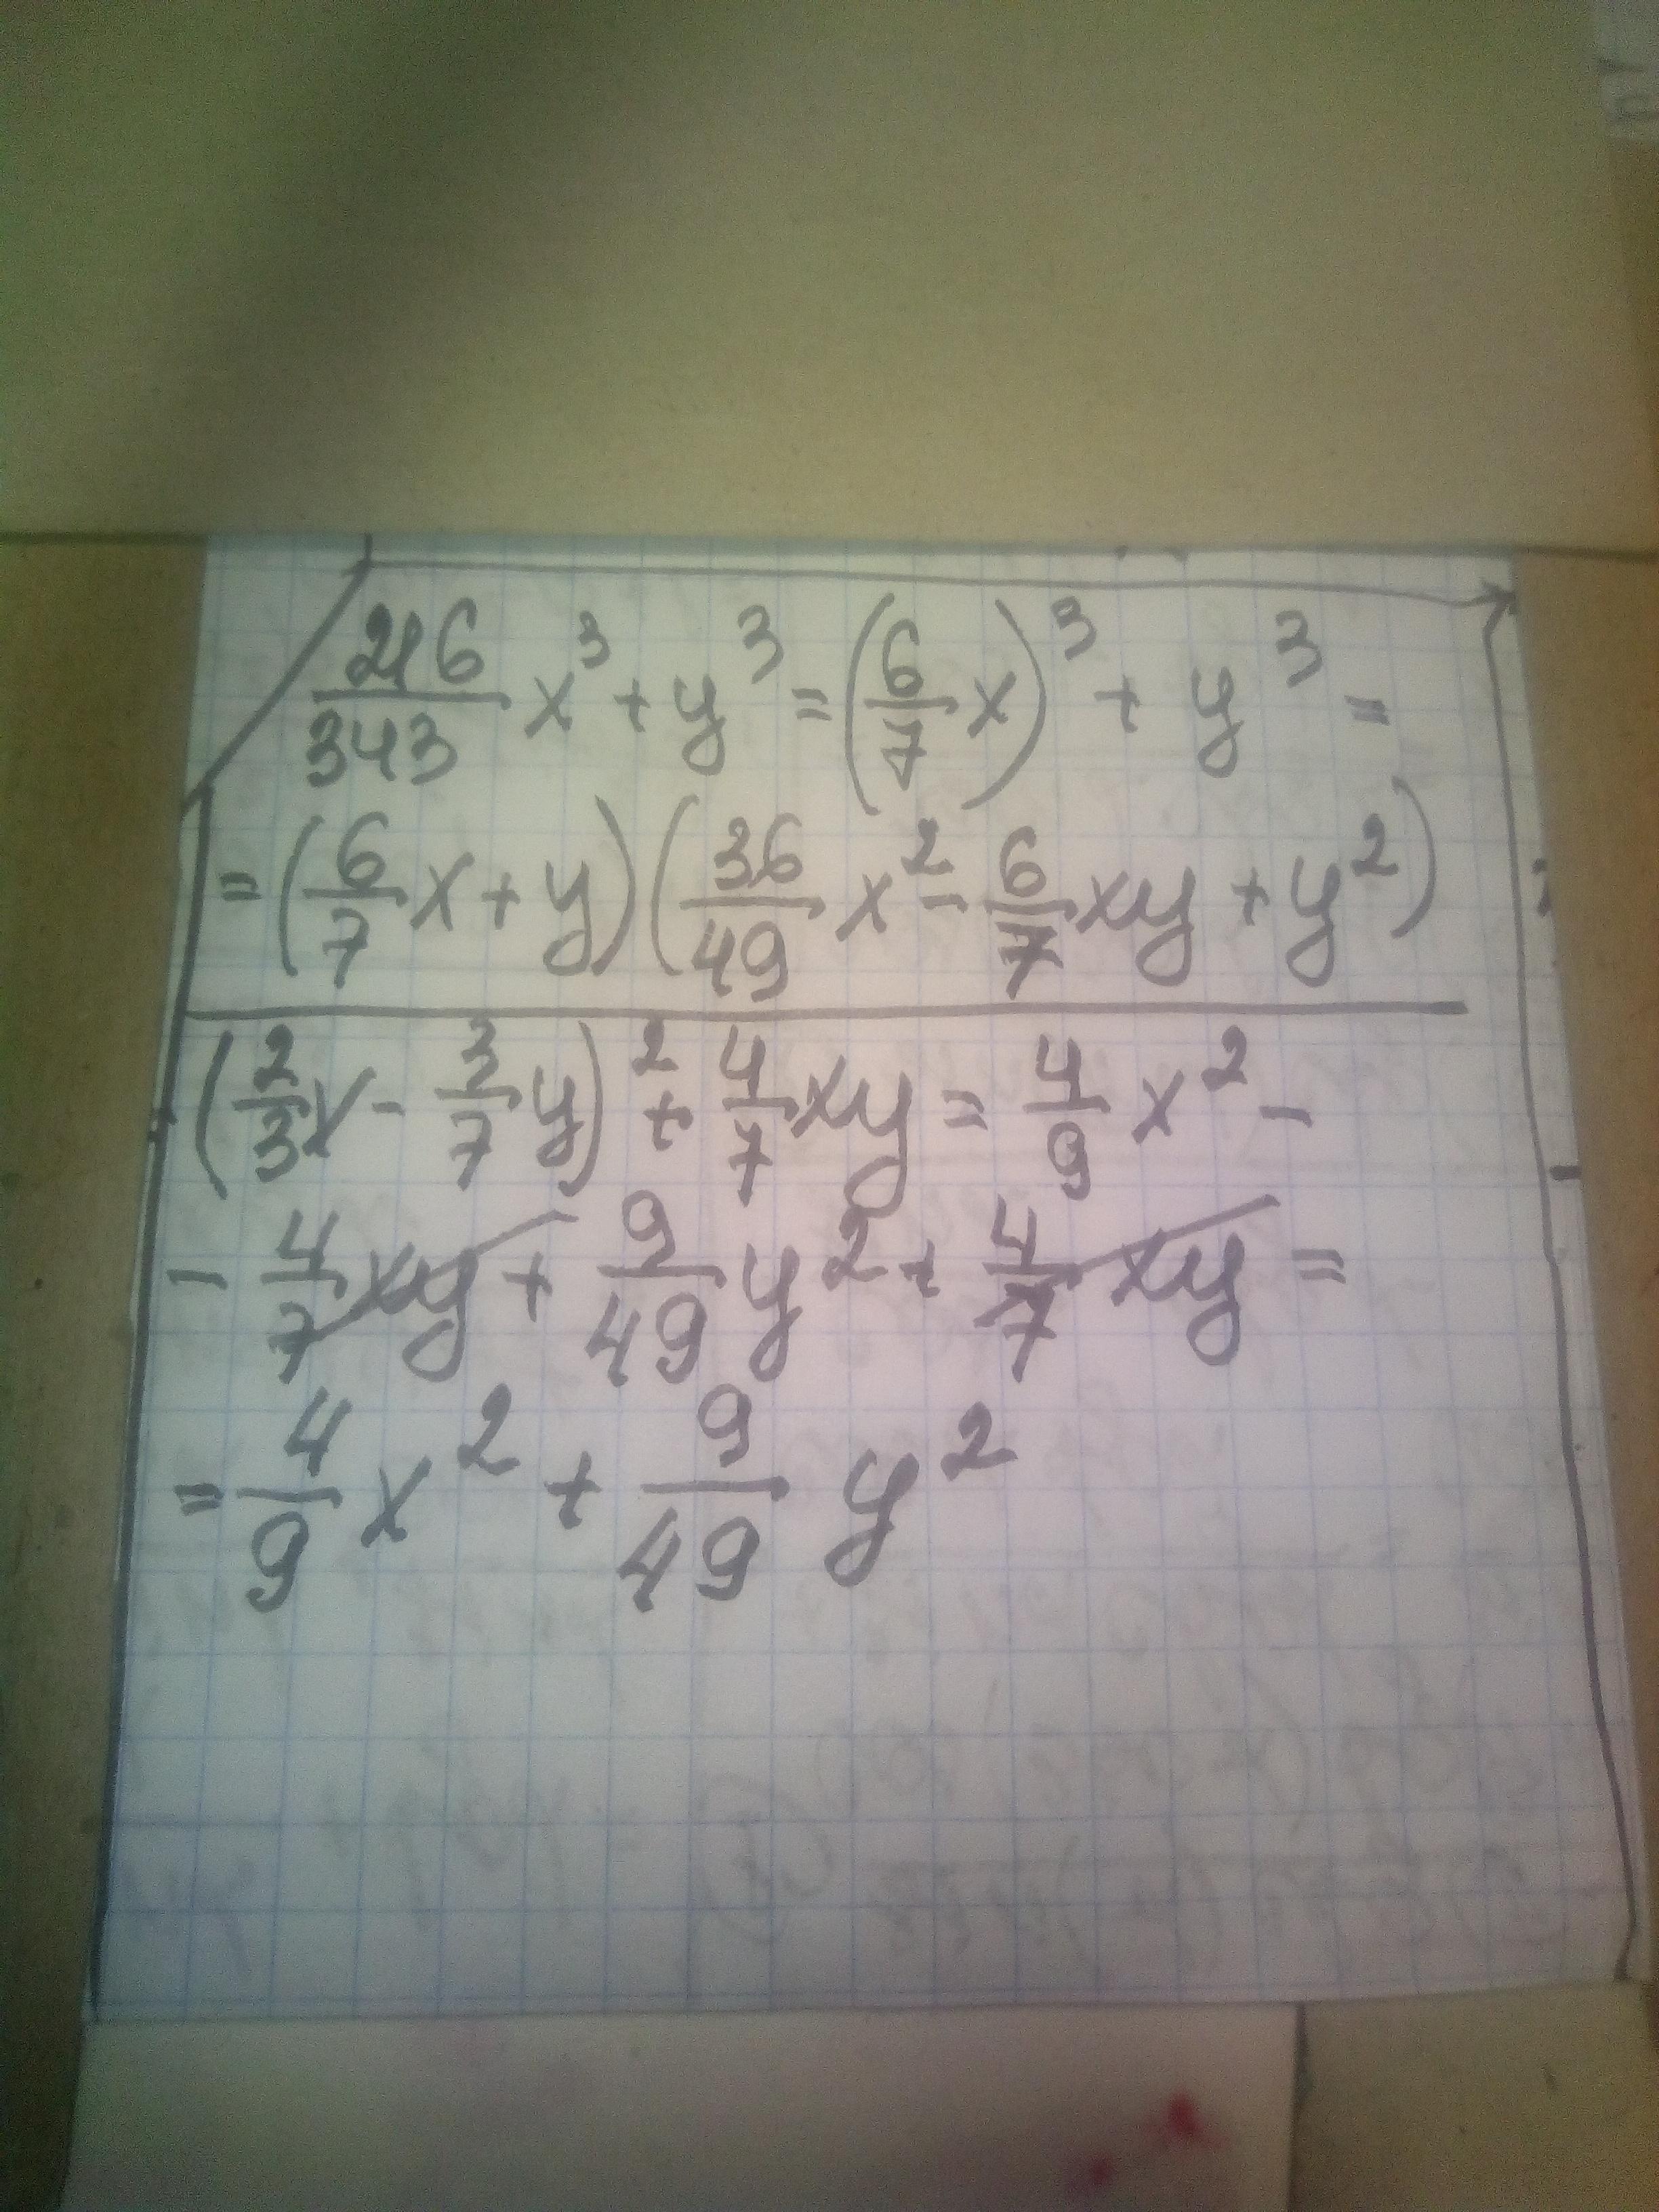 216/343 x³ + y³ = (6/7 x)³ + y³ =
= (6/7 x + y)(36/49 x² - 6/7 xy + y²)
(2/3 x - 3/7 y)² + 4/7 xy = 4/9 x² -
- 4/7 xy + 9/49 y² + 4/7 xy =
= 4/9 x² + 9/49 y²